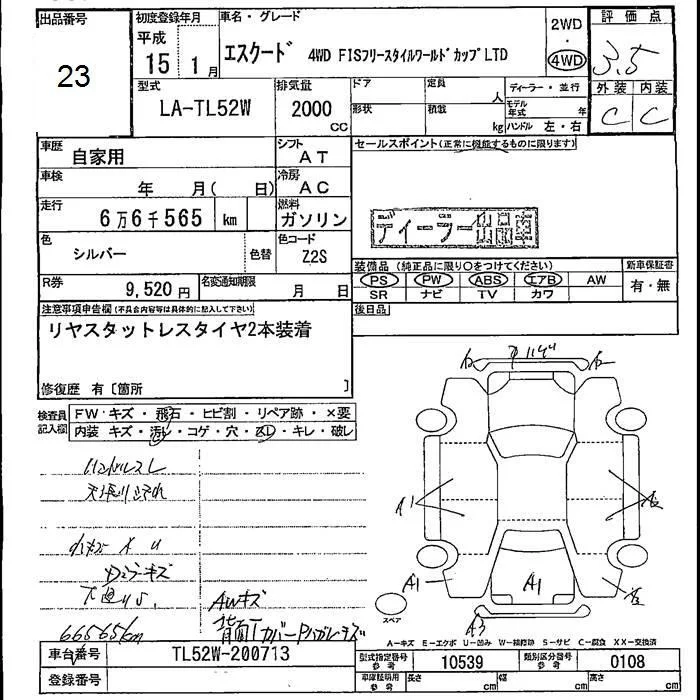 出品番号
23
初度登録年月
平成
15 1月
車名・グレード
エスクード 4WD FISフリースタイルワールドカップLTD
2WD
・
4WD
評価点
3.5
外装 内装
C C
型式
LA-TL52W
排気量
2000
cc
ドア
定員
人
形状
積載
kg
ディーラー・並行
モデル年式 年
ハンドル 左・右
車歴
自家用
シフト
AT
車検
年 月( 日)
冷房
AC
走行
6万6千565 km
燃料
ガソリン
色
シルバー
色替
色コード
Z2S
R券
9,520円
名変通知期限
月 日
セールスポイント(正常に機能するものに限ります)
ディーラー出品車
装備品(純正品に限り○をつけてください)
PS PW ABS エアB AW
SR ナビ TV カワ
新車保証書
有・無
後日品
注意事項申告欄(不具合内容等は具体的に記入して下さい)
リヤスタットレスタイヤ2本装着
修復歴 有〔箇所 〕
検査員記入欄
FW キズ・飛石・ヒビ割・リペア跡・×要
内装 キズ・汚レ・コゲ・穴・スレ・キレ・破レ
ハンドルスレ
キズ
66565km
AWキズ
A1
A1
A1
A3
スペア
A-キズ E-エクボ U-凹み W-補修跡 S-サビ C-腐食 XX-交換済
車台番号
TL52W-200713
登録番号
型式指定番号
参考
10539
類別区分番号
参考
0108
車庫証明用
参考
長さ cm
幅 cm
高さ cm